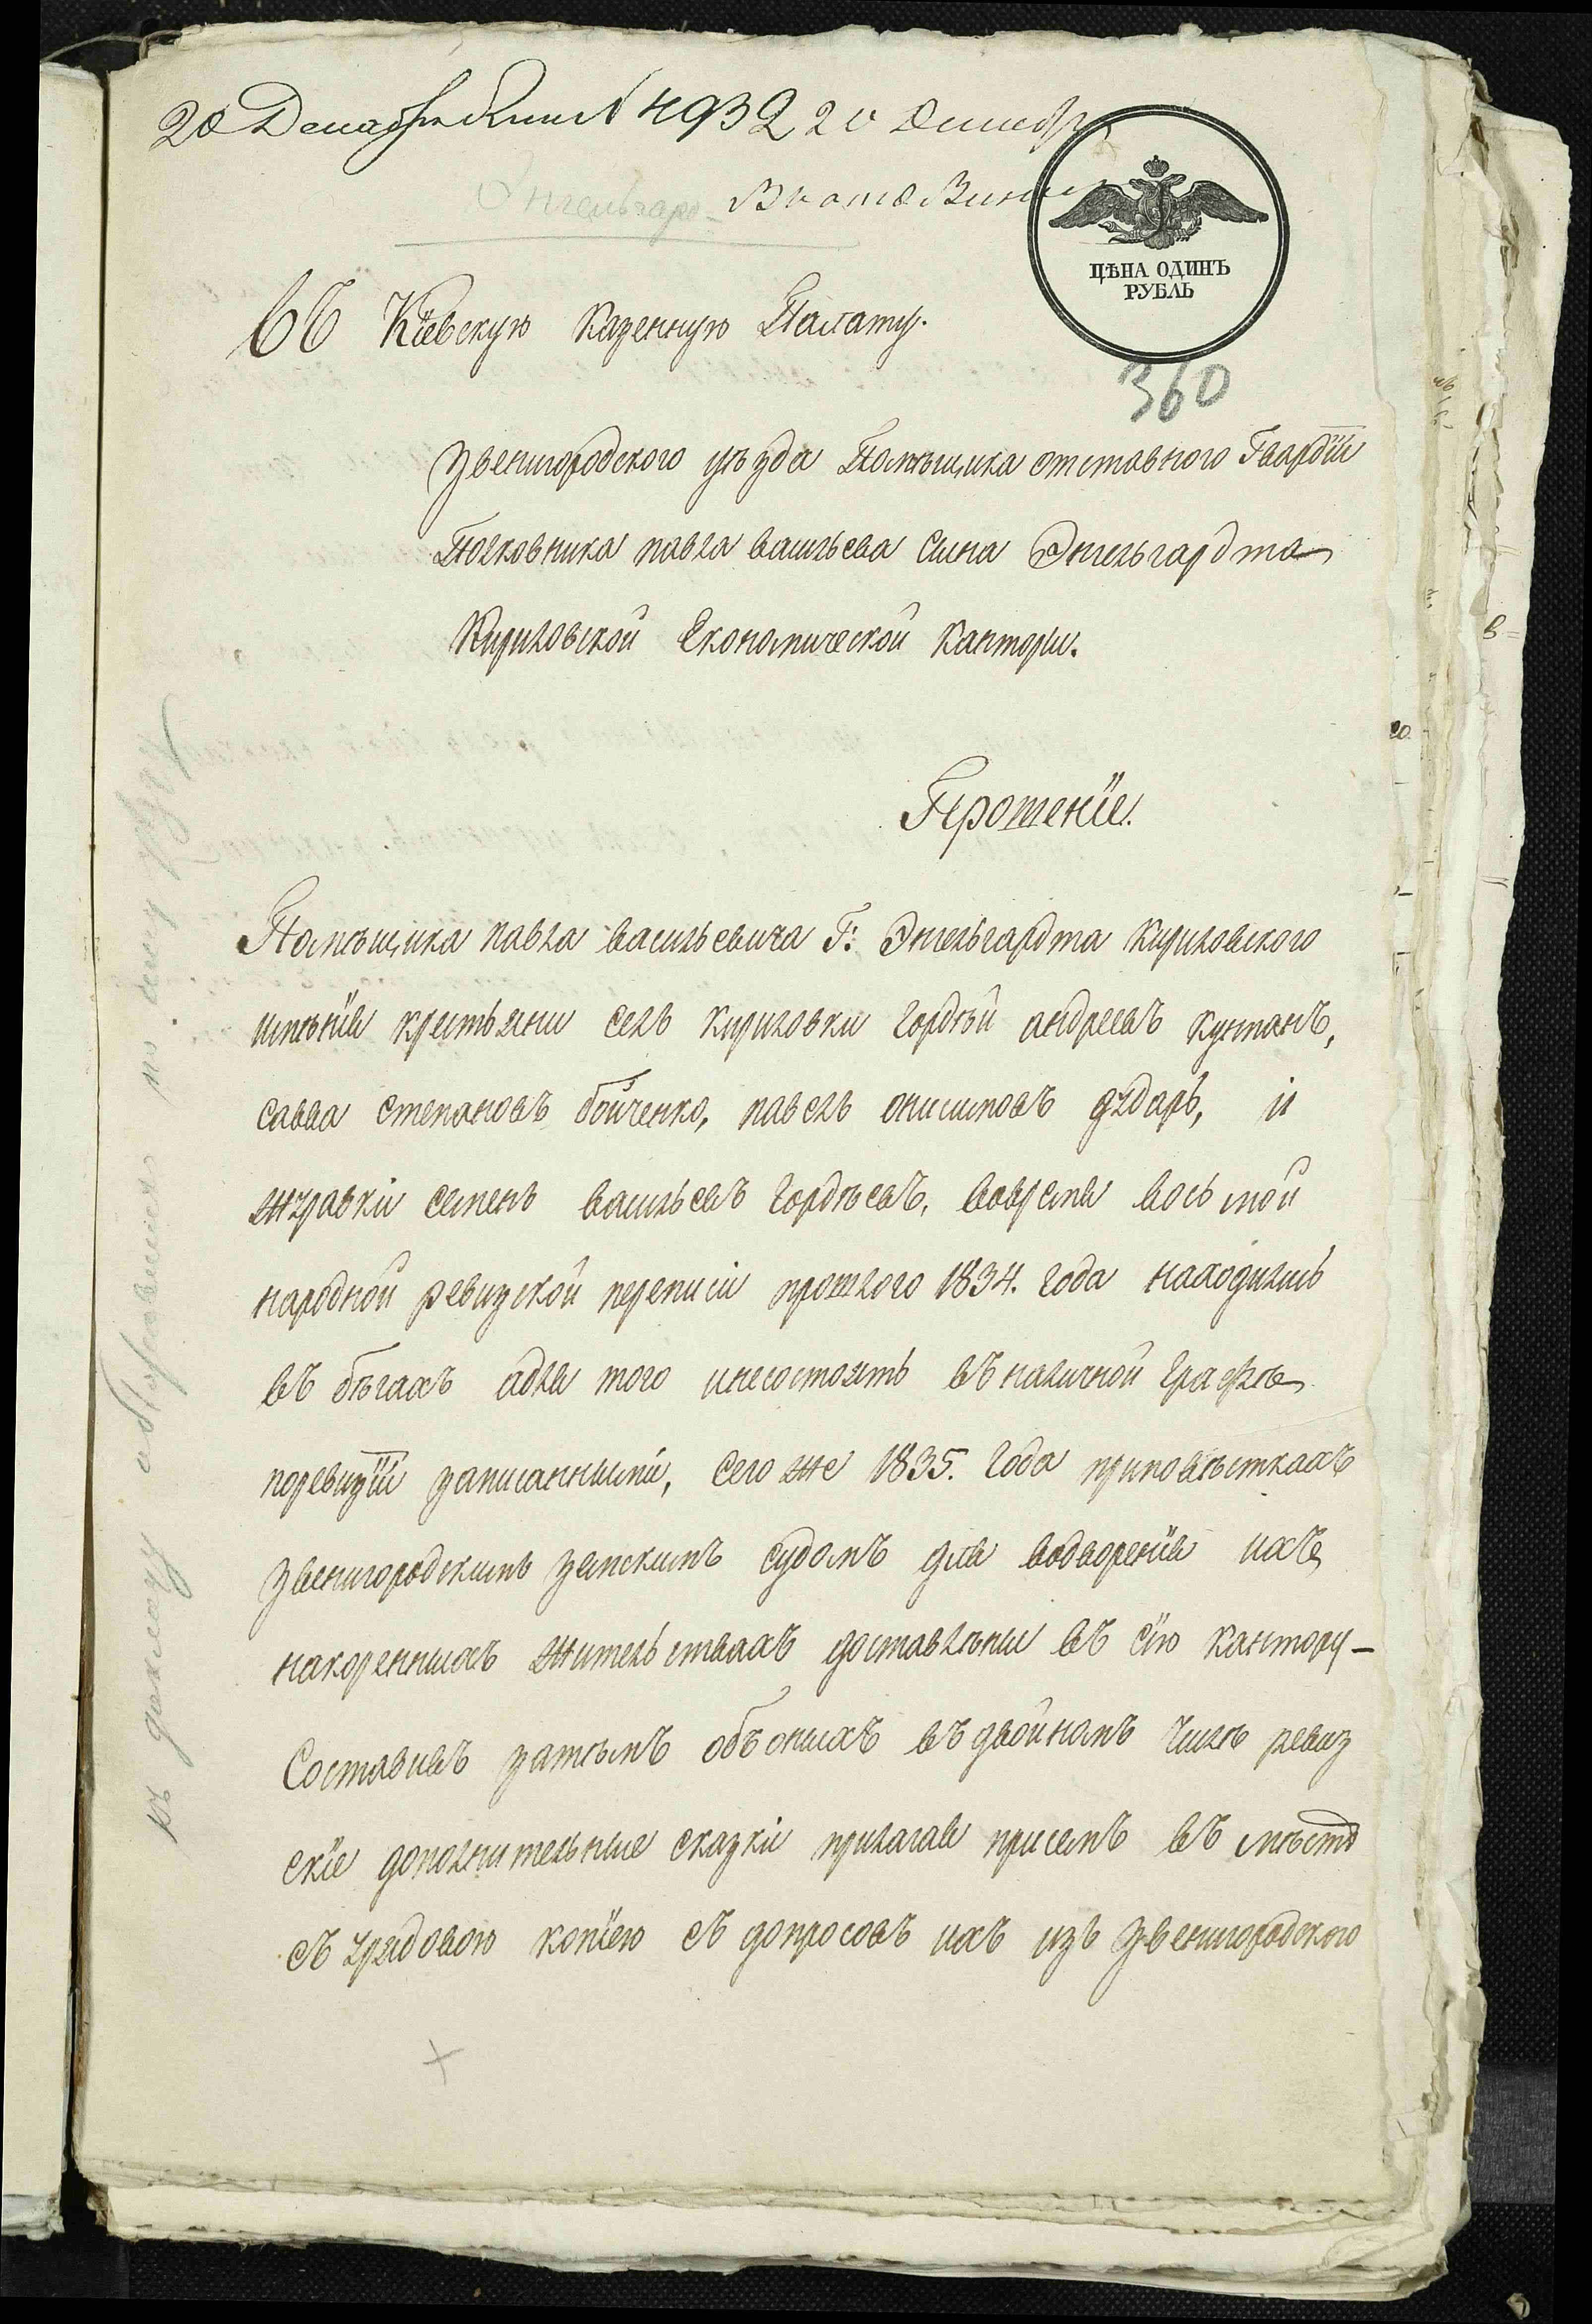 20 Декабря 4932 20 Декабря
Энгельгард
ЦѢНА ОДИНЪ
РУБЛЬ
Въ Кіевскую Казенную Палату.
360
Звенигородского уѣзда Помѣщика отставного Гвардіи
Полковника павла васильева Сина Энгельгардта
Кириловской Економической Канторы.
Прошеніе.
Помѣщика павла васильевича Г: Энгельгардта Кириловского
имѣнія крестьяни селъ Кириловки гордѣй андреевъ кунтанъ,
савва степановъ бойченко, павелъ онисимовъ дударь, и
журавки семенъ васильевъ гордѣевъ, вовремя восьмой
народной ревизской переписи прошлого 1834. года находились
въ бѣгахъ адля того инесостоятъ въ наличной графѣ
поревизіи записанными, сего же 1835. года приповѣсткахъ
звенигородскимъ земскимъ судомъ для водворенія ихъ
накоренныхъ жительствахъ доставлѣны въ сію кантору –
Составивъ затѣмъ объ оныхъ въ двойномъ числѣ ревиз
скіе дополнительные сказки прилагая присемъ въ мѣсто
съ урядовою копіею съ допросовъ ихъ изъ Звенигородского
къ докладу